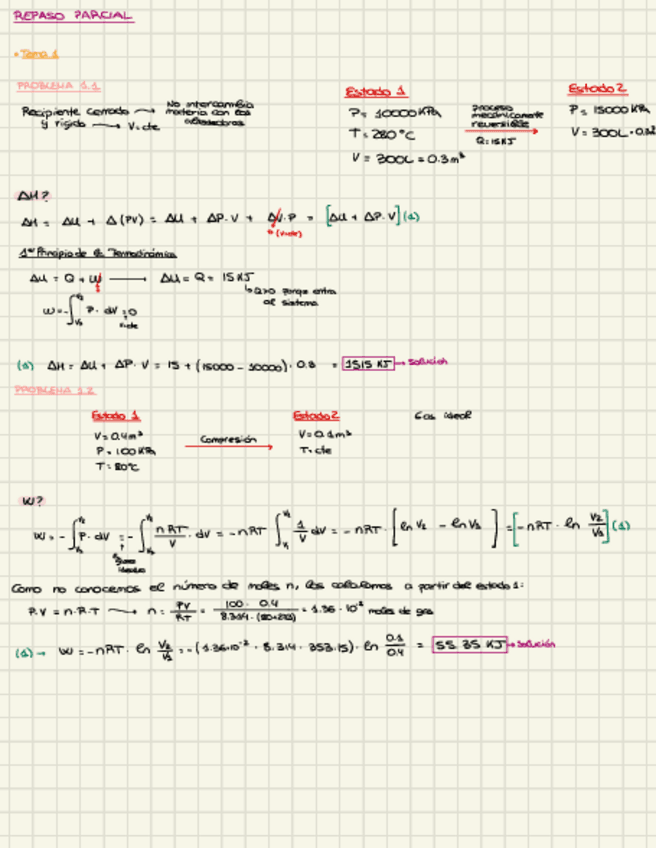 REPASO PARCIAL
• Tema 1
PROBLEMA 1.1
Recipiente cerrado → No intercambia materia con los alrededores
y rígido → V=cte
Estado 1
P= 10000 KPa
T= 280 °C
V = 300L = 0.3 m³
proceso mecánicamente reversible
Q=15KJ
Estado 2
P= 15000 KPa
V = 300L = 0.3
ΔH?
ΔH = ΔU + Δ(PV) = ΔU + ΔP·V + ΔV·P = [ΔU + ΔP·V] (1)
(V=cte)
1er Principio de la Termodinámica
ΔU = Q + W → ΔU = Q = 15 KJ
Q>0 porque entra al sistema
W=-∫ P· dV = 0
V=cte
(1) ΔH = ΔU + ΔP·V = 15 + (15000 - 10000)· 0.3 = 1515 KJ → Solución
PROBLEMA 1.2
Estado 1
V= 0.4m³
P= 100 KPa
T= 80°C
Compresión
Estado 2
V= 0.1m³
T= cte
Gas ideal
W?
W= -∫ P· dV = -∫ nRT/V · dV = -nRT ∫ 1/V dV = -nRT· [ln V2 - ln V1] = [-nRT· ln V2/V1] (1)
Como no conocemos el número de moles n, los calculamos a partir del estado 1:
P·V = n·R·T → n= PV/RT = 100 · 0.4 / 8.314·(80+273) = 1.36 · 10⁻² moles de gas
(1) → W = -nRT· ln V2/V1 = -(1.36·10⁻² · 8.314 · 353.15)· ln 0.1/0.4 = 55.35 KJ → Solución